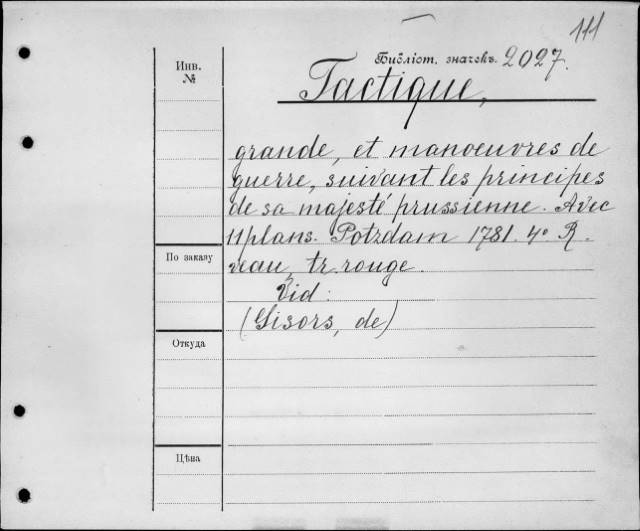 111
Инв.
№
Библіот. значекъ. 2027.
Tactique,
grande, et manoeuvres de
guerre, suivant les principes
de sa majesté prussienne. Avec
11 plans. Potzdam 1781. 4º R.
По заказу
veau, tr. rouge.
Vid:
(Gisors, de)
Откуда
Цѣна